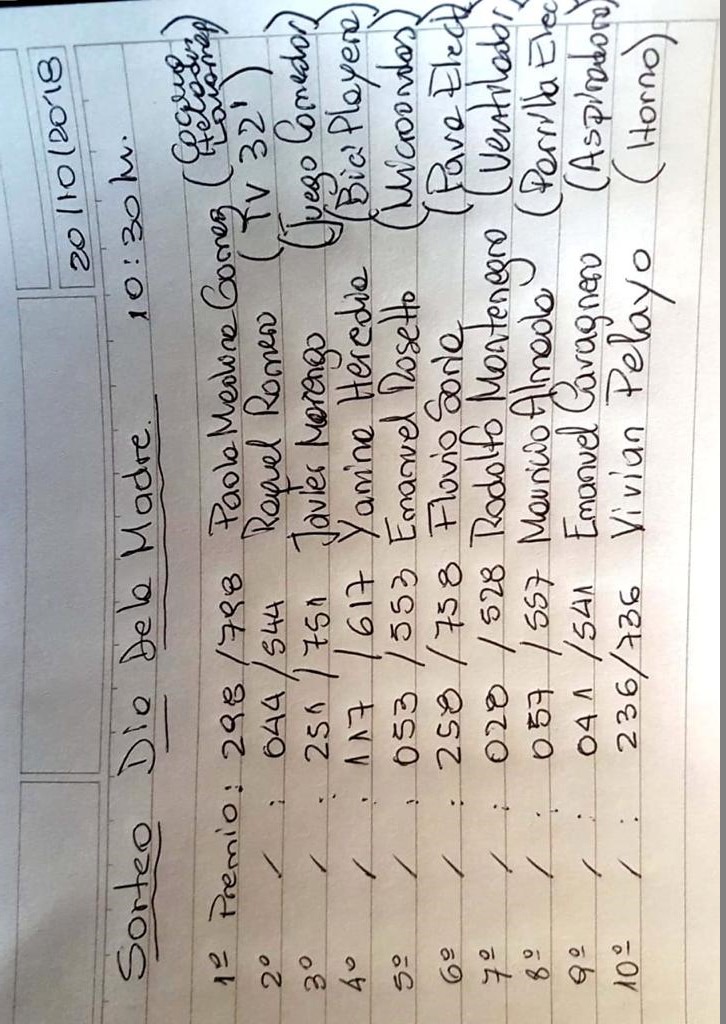 20/10/2018
Sorteo Dia Dela Madre. 10:30 hr.
1º Premio: 298/798 Paola Medina Gomez (Cocina Heladera Lavarrop)
2º / : 044/544 Raquel Romero (TV 32')
3º / : 251/751 Javier Marengo (Juego Comedor)
4º / : 117/617 Yamina Heredia (Bici Playera)
5º / : 053/553 Emanuel Rosetto (Microondas)
6º / : 258/758 Flavio Soria (Pava Elect
7º / : 028/528 Rodolfo Montenegro (Ventilador)
8º / : 057/557 Mauricio Almada (Parrilla Elec
9º / : 041/541 Emanuel Cavagnero (Aspiradora)
10º / : 236/736 Vivian Pelayo (Horno)